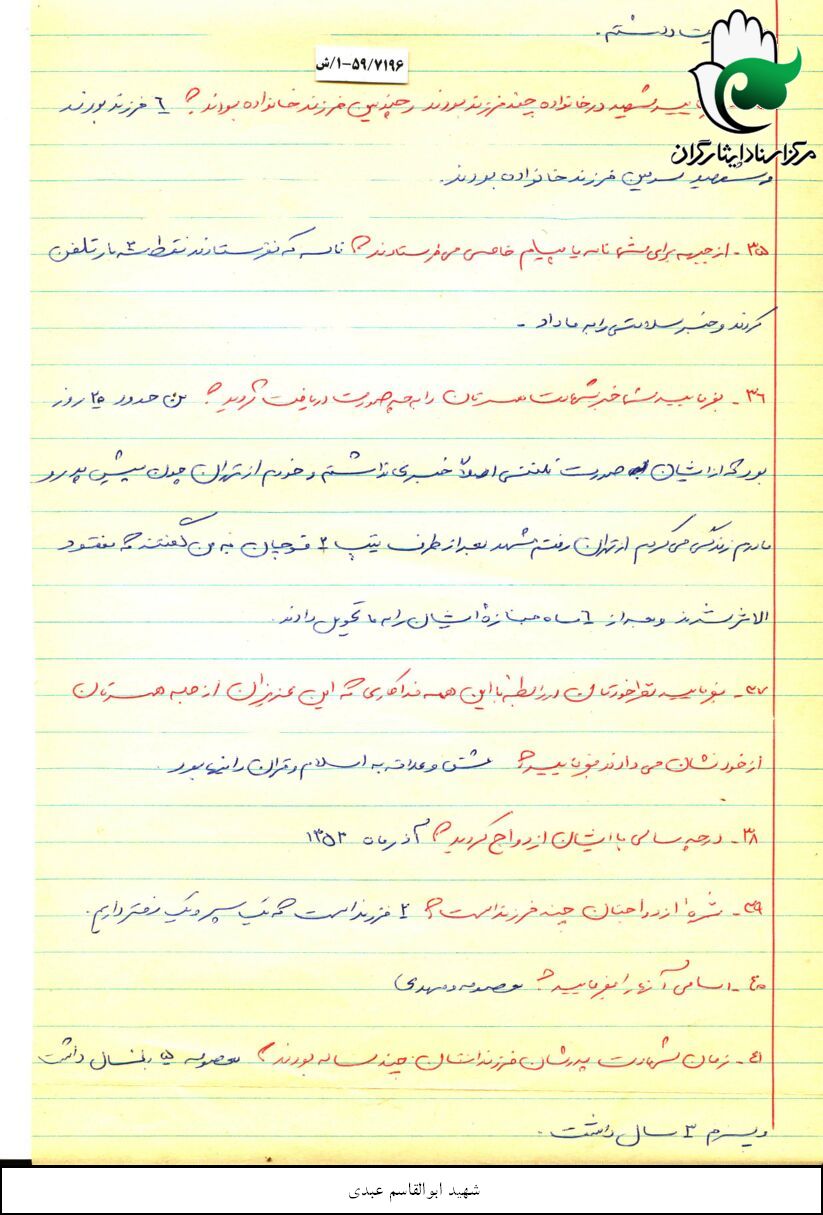 یت داشتم.
۵۹/۷۱۹۶-۱/ش
مرکز اسناد ایثارگران
یید شهید در خانواده چند فرزند بودند و چندمین فرزند خانواده بودند؟ ٦ فرزند بودند
و شهید سومین فرزند خانواده بودند.
۳۵- از جبهه برای شما نامه یا پیام خاصی می فرستادند؟ نامه که نفرستادند فقط سه ۳ بار تلفن
کردند و خبر سلامتی را به ما داد.
۳۶- بفرمایید شما خبر شهادت همسرتان را به چه صورت دریافت کردید؟ من حدود ۲۵ روز
بود که از ایشان به صورت تلفنی اصلاً خبری نداشتم و خودم از تهران چون پیش پدر و
مادرم زندگی می کردم از تهران رفتم مشهد بعد از طرف تیپ ۲ قوچان به من گفتند که مفقود
الاثر شدند و بعد از ٦ ماه جنازهٔ ایشان را به ما تحویل دادند.
۳۷- بفرمایید نظر خودتان در رابطه با این همه فداکاری که این عزیزان از جمله همسرتان
از خود نشان می دادند بفرمایید؟ عشق و علاقه به اسلام و قران را تنها بود.
۳۸- در چه سالی با ایشان ازدواج کردید؟ آذر ماه ۱۳۵۳
۳۹- ثمرهٔ ازدواجتان چند فرزند است؟ ۲ فرزند است که یک پسر و یک دختر داریم.
۴۰- اسامی آنها را بفرمایید؟ معصومه و مهدی
۴۱- زمان شهادت پدرشان فرزندانتان چند ساله بودند؟ معصومه ۵ سال داشت
و پسرم ۳ سال داشت.
شهید ابوالقاسم عبدی